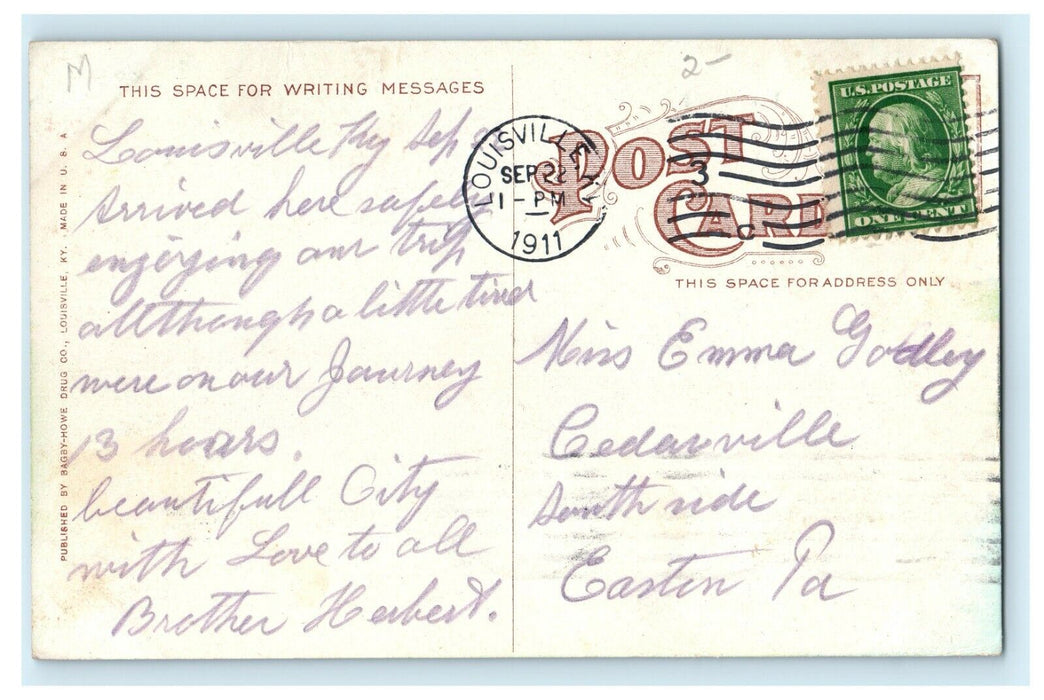 M
2-
THIS SPACE FOR WRITING MESSAGES
Louisville Ky Sep
Arrived here safely
enjoying our trip
allthough a little tired
were on our Journey
13 hours.
beautifull City
with Love to all
Brother Herbert.
PUBLISHED BY BAGBY-HOWE DRUG CO., LOUISVILLE, KY. MADE IN U. S. A
LOUISVILLE, KY.
SEP 22
11 - PM
1911
3
C
POST
CARD
U.S. POSTAGE
ONE CENT
THIS SPACE FOR ADDRESS ONLY
Miss Emma Godley
Cedarville
South side
Easton Pa